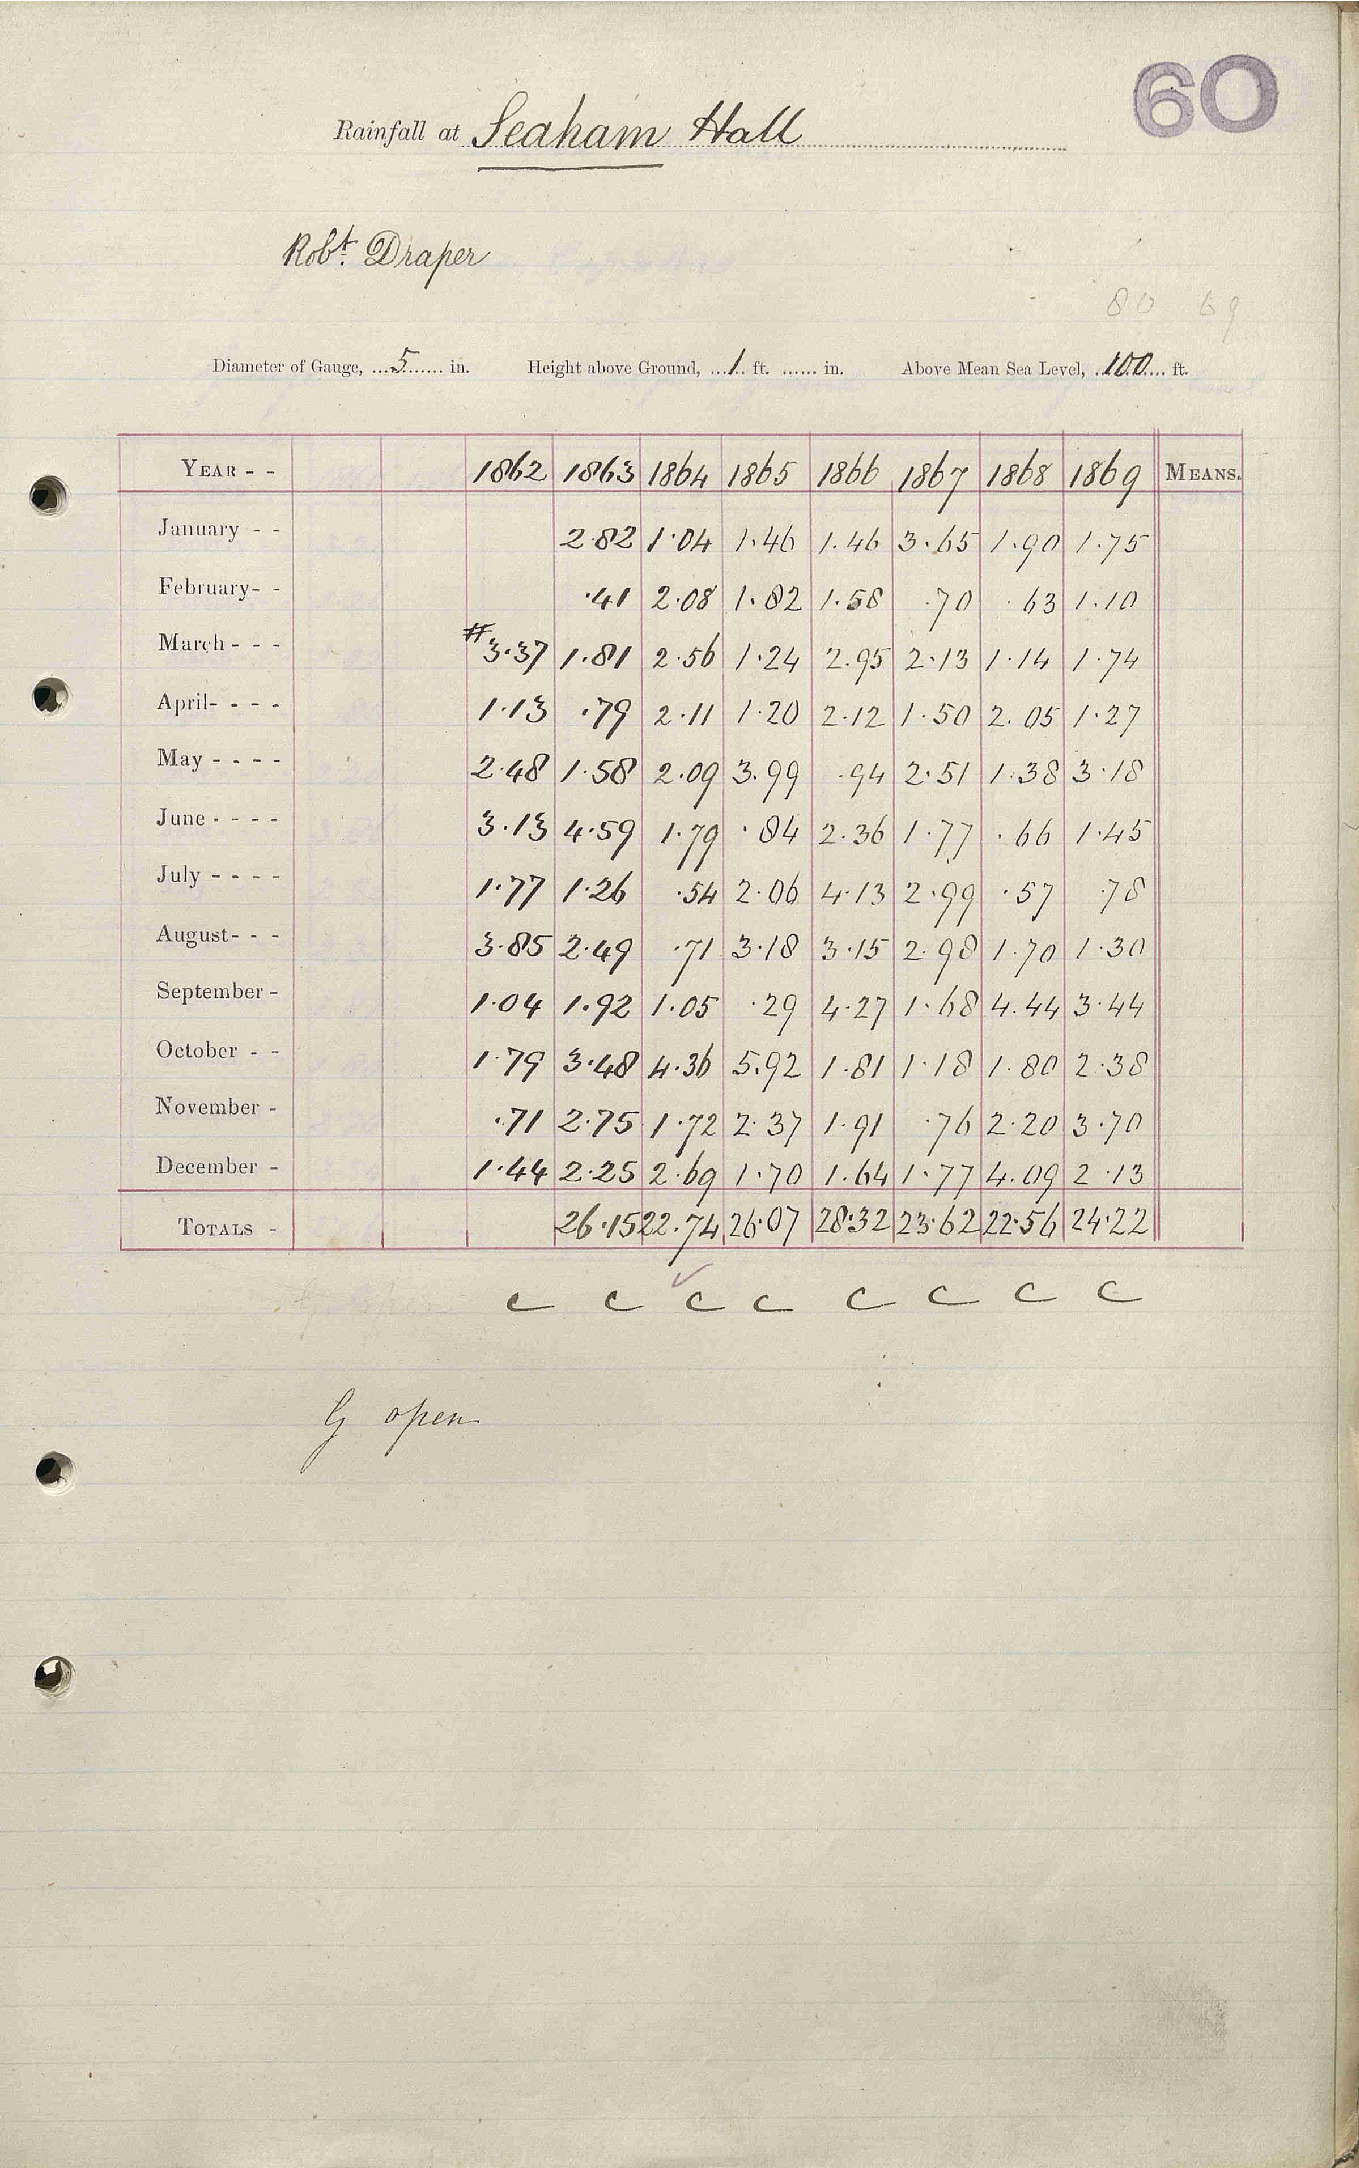 60
Rainfall at Seaham Hall
Robt. Draper
80 69
Diameter of Gauge, 5 in. Height above Ground, 1 ft. in. Above Mean Sea Level, 100 ft.
YEAR - - 1862 1863 1864 1865 1866 1867 1868 1869 MEANS.
January - - 2.82 1.04 1.46 1.46 3.65 1.90 1.75
February - - .41 2.08 1.82 1.58 .70 .63 1.10
March - - - # 3.37 1.81 2.56 1.24 2.95 2.13 1.14 1.74
April - - - - 1.13 .79 2.11 1.20 2.12 1.50 2.05 1.27
May - - - - 2.48 1.58 2.09 3.99 .94 2.51 1.38 3.18
June - - - - 3.13 4.59 1.79 .84 2.36 1.77 .66 1.45
July - - - - 1.77 1.26 .54 2.06 4.13 2.99 .57 .78
August - - - 3.85 2.49 .71 3.18 3.15 2.98 1.70 1.30
September - 1.04 1.92 1.05 .29 4.27 1.68 4.44 3.44
October - - 1.79 3.48 4.36 5.92 1.81 1.18 1.80 2.38
November - .71 2.75 1.72 2.37 1.91 .76 2.20 3.70
December - 1.44 2.25 2.69 1.70 1.64 1.77 4.09 2.13
TOTALS - 26.15 22.74 26.07 28.32 23.62 22.56 24.22
c c c c c c c c
G open